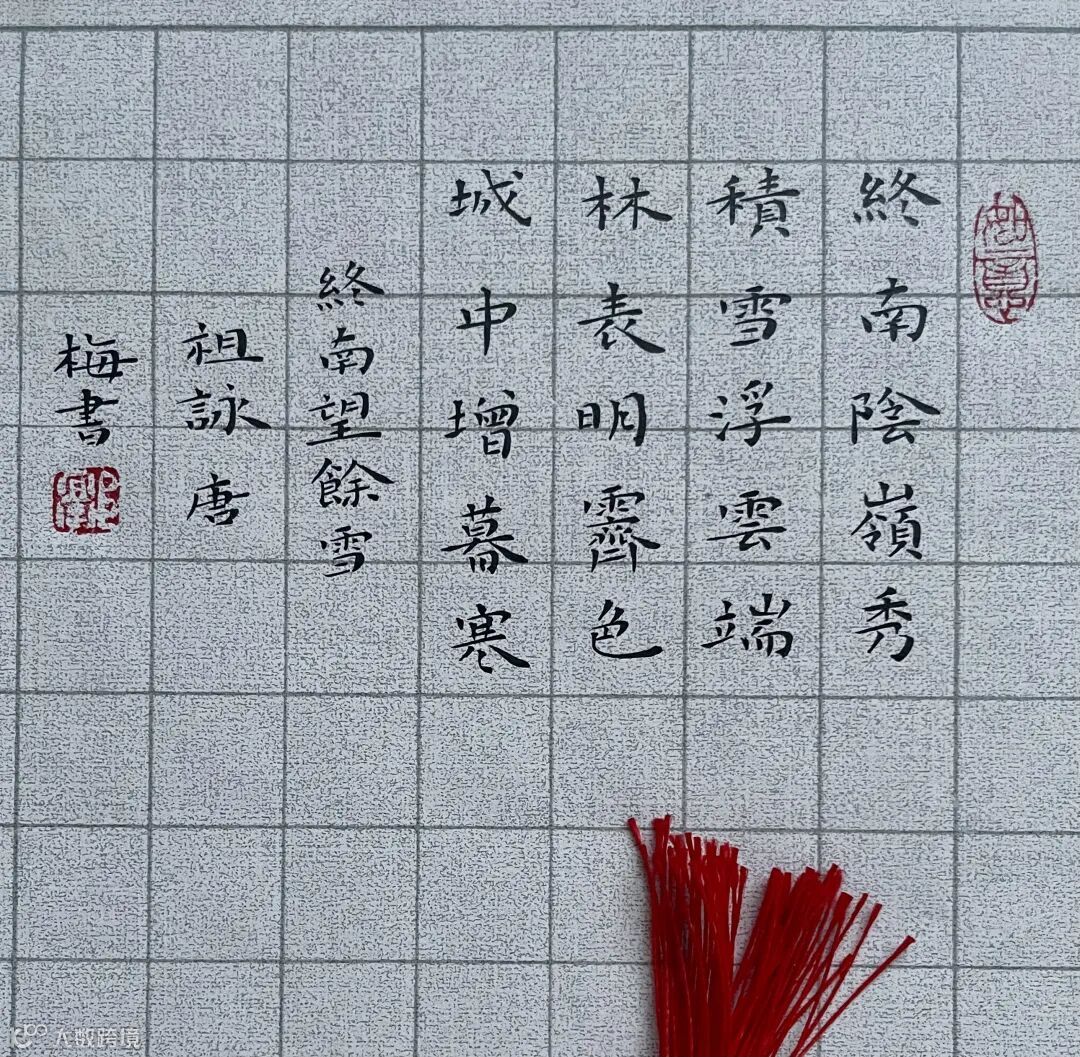 終南陰嶺秀
積雪浮雲端
林表明霽色
城中增暮寒
終南望餘雪
祖詠 唐
梅書
大数跨境